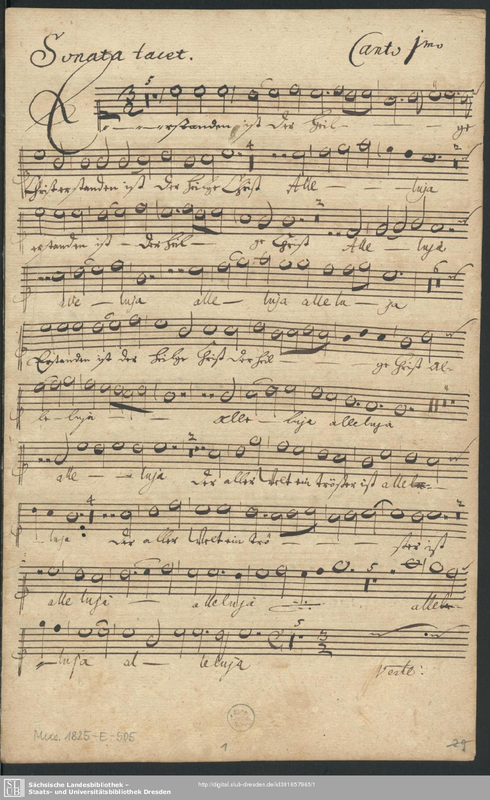 Sonata tacet. Canto 1mo
5
erstanden ist der heil- ge
4 2
Christ erstanden ist der heilge Christ Alle- luja
2
erstanden ist der heil- ge Christ Alle- luja
6
alle- luja alle- luja allelu- ja
Erstanden ist der heilge Christ der heil- ge Christ al-
le- luja alle- luja alleluja
2
alle- luja der aller Welt ein tröster ist allelu-
4 2
luja der aller Welt ein trö- ster ist
5
alle luja alleluja allelu-
5
luja al- leluja Verte:
Mus. 1825-E-505
1
29
Sächsische Landesbibliothek –
Staats- und Universitätsbibliothek Dresden
http://digital.slub-dresden.de/id391657965/1